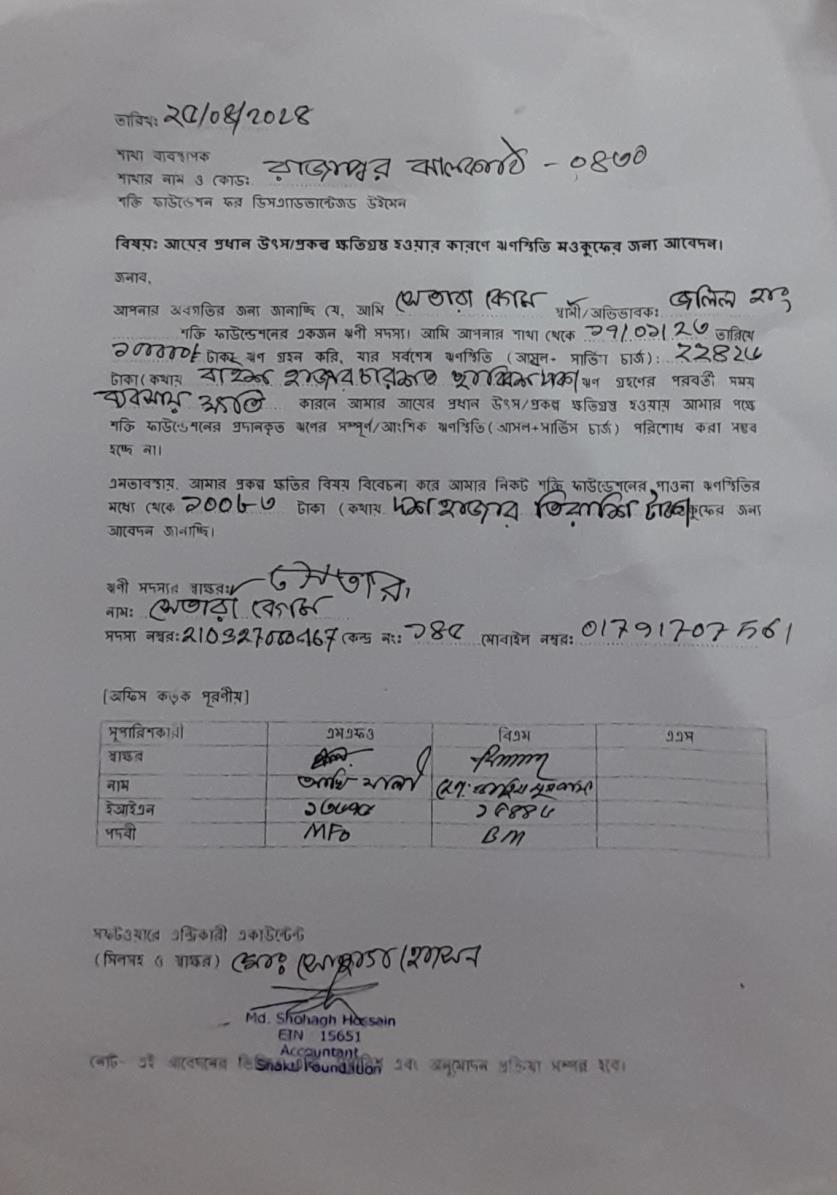 তারিখ: ২৫/০৪/2028
শাখা ব্যবস্থাপক
শাখার নাম ও কোড: রাজাপুর ঝালকাঠি - ০৪৩০
শক্তি ফাউন্ডেশন ফর ডিসএ্যাডভান্টেজড উইমেন
বিষয়: আয়ের প্রধান উৎস/প্রকল্প ক্ষতিগ্রস্থ হওয়ার কারণে ঋণস্থিতি মওকুফের জন্য আবেদন।
জনাব,
আপনার অবগতির জন্য জানাচ্ছি যে, আমি সেতারা বেগম স্বামী/অভিভাবক: জলিল
শক্তি ফাউন্ডেশনের একজন ঋণী সদস্য। আমি আপনার শাখা থেকে তারিখে
টাকা ঋণ গ্রহন করি, যার সর্বশেষ ঋণস্থিতি (আসল+ সার্ভিস চার্জ):
টাকা (কথায় বাইশ হাজার চারশত ঋণ গ্রহণের পরবর্তী সময়
ব্যবসায় ক্ষতি কারনে আমার আয়ের প্রধান উৎস/প্রকল্প ক্ষতিগ্রস্থ হওয়ায় আমার পক্ষে
শক্তি ফাউন্ডেশনের প্রদানকৃত ঋণের সম্পূর্ণ/আংশিক ঋণস্থিতি (আসল+সার্ভিস চার্জ) পরিশোধ করা সম্ভব
হচ্ছে না।
এমতাবস্থায়, আমার প্রকল্প ক্ষতির বিষয় বিবেচনা করে আমার নিকট শক্তি ফাউন্ডেশনের পাওনা ঋণস্থিতির
মধ্যে থেকে ১০০৮৩ টাকা (কথায় দশ হাজার তিরাশি টাকা) জন্য
আবেদন জানাচ্ছি।
ঋণী সদস্যর স্বাক্ষর: সেতারা
নাম: সেতারা বেগম
সদস্য নম্বর: কেন্দ্র নং: ১৪৫ মোবাইল নম্বর:
[অফিস কর্তৃক পূরণীয়]
সুপারিশকারী এমএফও বিএম এএম
স্বাক্ষর
নাম
ইআইএন
পদবী MFO BM
সফটওয়্যারে এন্ট্রিকারী একাউন্টেন্ট
(সিলসহ ও স্বাক্ষর) মোঃ সোহাগ হোসেন
Md. Shohagh Hossain
EIN 15651
Accountant
Shakti Foundation
নোট- এই আবেদনের এবং অনুমোদন প্রক্রিয়া সম্পন্ন হবে।